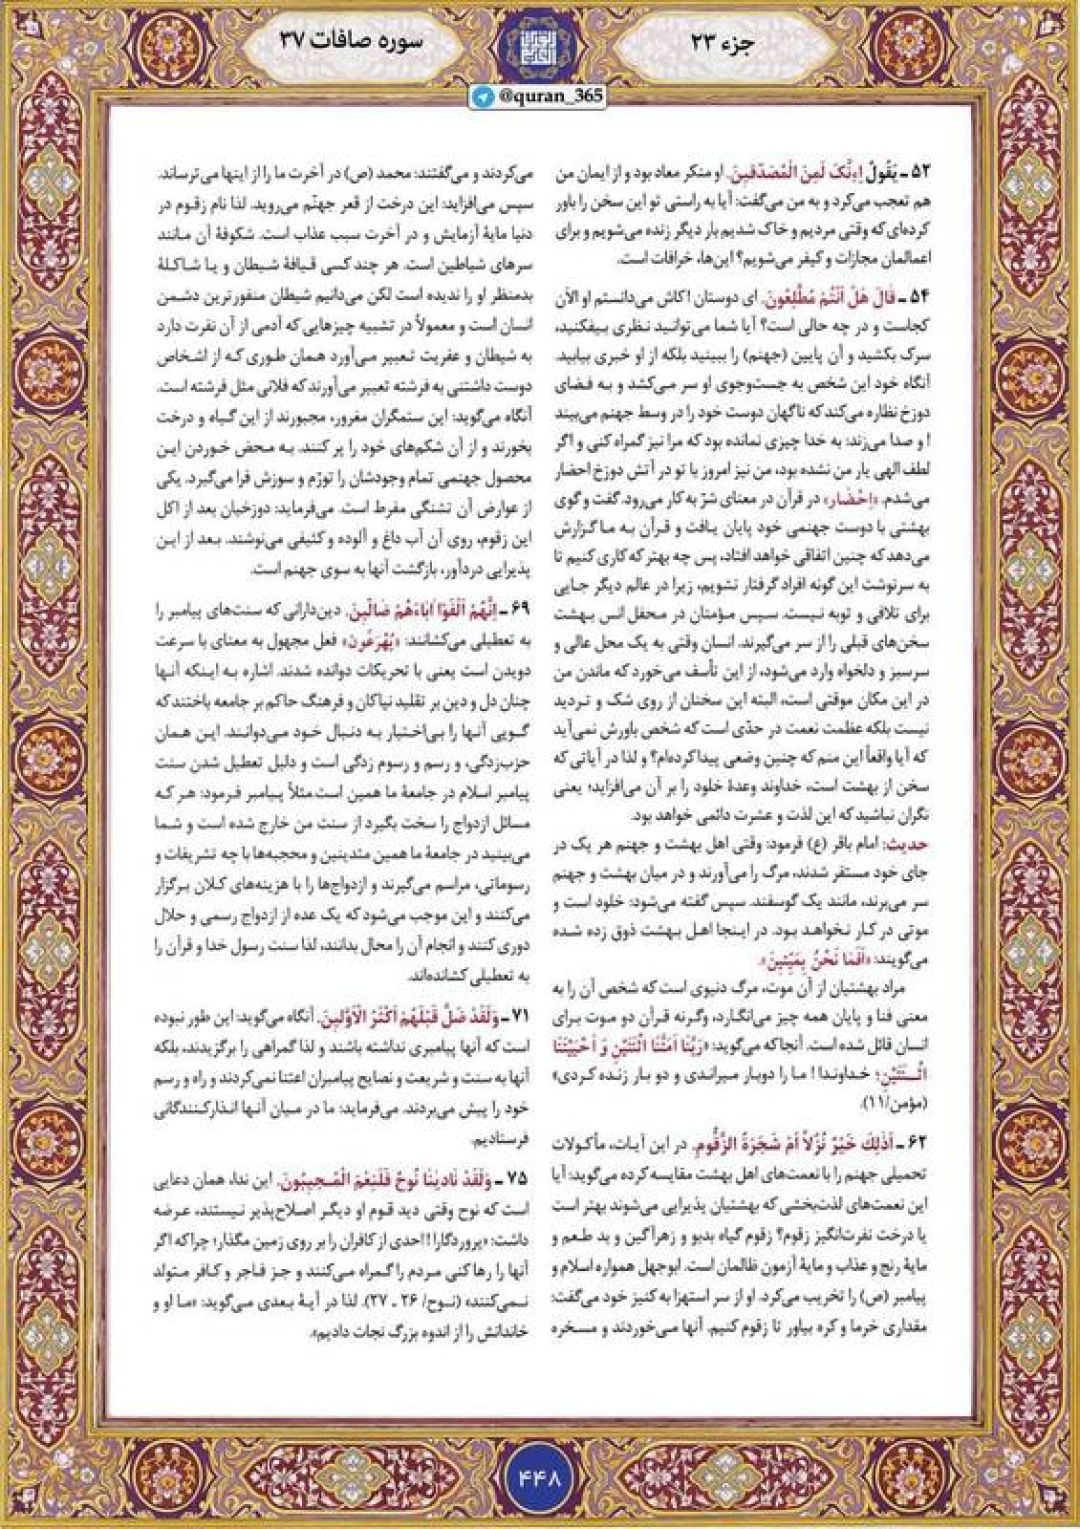 جزء ۲۳
سوره صافات ۳۷
@quran_365
۵۲ - يَقُولُ اءِنَّكَ لَمِنَ الْمُصَدِّقينَ. او منکر معاد بود و از ایمان من
هم تعجب می‌کرد و به من می‌گفت: آیا به راستی تو این سخن را باور
کرده‌ای که وقتی مردیم و خاک شدیم بار دیگر زنده می‌شویم و برای
اعمالمان مجازات و کیفر می‌شویم؟ این‌ها، خرافات است.
۵۴ - قَالَ هَلْ أَنْتُمْ مُطَّلِعُونَ. ای دوستان! کاش می‌دانستم او الآن
کجاست و در چه حالی است؟ آیا شما می‌توانید نظری بیفکنید،
سرک بکشید و آن پایین (جهنم) را ببینید بلکه از او خبری بیابید.
آنگاه خود این شخص به جست‌وجوی او سر می‌کشد و به فضای
دوزخ نظاره می‌کند که ناگهان دوست خود را در وسط جهنم می‌بیند
! و صدا می‌زند: به خدا چیزی نمانده بود که مرا نیز گمراه کنی و اگر
لطف الهی یار من نشده بود، من نیز امروز با تو در آتش دوزخ احضار
می‌شدم. «اِحْضار» در قرآن در معنای شرّ به کار می‌رود. گفت و گوی
بهشتی با دوست جهنمی خود پایان یافت و قرآن به ما گزارش
می‌دهد که چنین اتفاقی خواهد افتاد، پس چه بهتر که کاری کنیم تا
به سرنوشت این گونه افراد گرفتار نشویم، زیرا در عالم دیگر جایی
برای تلافی و توبه نیست. سپس مؤمنان در محفل انس بهشت
سخن‌های قبلی را از سر می‌گیرند. انسان وقتی به یک محل عالی و
سرسبز و دلخواه وارد می‌شود، از این تأسف می‌خورد که ماندن من
در این مکان موقتی است، البته این سخنان از روی شک و تردید
نیست بلکه عظمت نعمت در حدّی است که شخص باورش نمی‌آید
که آیا واقعاً این منم که چنین وضعی پیدا کرده‌ام؟ و لذا در آیاتی که
سخن از بهشت است، خداوند وعدهٔ خلود را بر آن می‌افزاید؛ یعنی
نگران نباشید که این لذت و عشرت دائمی خواهد بود.
حدیث: امام باقر (ع) فرمود: وقتی اهل بهشت و جهنم هر یک در
جای خود مستقر شدند، مرگ را می‌آورند و در میان بهشت و جهنم
سر می‌برند، مانند یک گوسفند. سپس گفته می‌شود: خلود است و
موتی در کار نخواهد بود. در اینجا اهل بهشت ذوق زده شده
می‌گویند: «أَفَمَا نَحْنُ بِمَيِّتينَ».
مراد بهشتیان از آن موت، مرگ دنیوی است که شخص آن را به
معنی فنا و پایان همه چیز می‌انگارد، وگرنه قرآن دو موت برای
انسان قائل شده است. آنجا که می‌گوید: «رَبَّنا اَمَتَّنَا اثْنَتَيْنِ وَ اَحْيَيْتَنَا
اثْنَتَيْنِ؛ خداوندا! ما را دوبار میراندی و دو بار زنده کردی»
(مؤمن/۱۱).
۶۲ - أَذَلِكَ خَيْرٌ نُزُلاً أَمْ شَجَرَةُ الزَّقُّومِ. در این آیات، مأکولات
تحمیلی جهنم را با نعمت‌های اهل بهشت مقایسه کرده می‌گوید: آیا
این نعمت‌های لذت‌بخشی که بهشتیان پذیرایی می‌شوند بهتر است
یا درخت نفرت‌انگیز زقوم؟ زقوم گیاه بدبو و زهرآگین و بد طعم و
مایهٔ رنج و عذاب و مایهٔ آزمون ظالمان است. ابوجهل همواره اسلام و
پیامبر (ص) را تخریب می‌کرد. او از سر استهزا به کنیز خود می‌گفت:
مقداری خرما و کره بیاور تا زقوم کنیم. آنها می‌خوردند و مسخره
می‌کردند و می‌گفتند: محمد (ص) در آخرت ما را از اینها می‌ترساند.
سپس می‌افزاید: این درخت از قعر جهنّم می‌روید. لذا نام زقوم در
دنیا مایهٔ آزمایش و در آخرت سبب عذاب است. شکوفهٔ آن مانند
سرهای شیاطین است. هر چند کسی قیافهٔ شیطان و یا شاکلهٔ
بدمنظر او را ندیده است لکن می‌دانیم شیطان منفورترین دشمن
انسان است و معمولاً در تشبیه چیزهایی که آدمی از آن نفرت دارد
به شیطان و عفریت تعبیر می‌آورد همان طوری که از اشخاص
دوست داشتنی به فرشته تعبیر می‌آورند که فلانی مثل فرشته است.
آنگاه می‌گوید: این ستمگران مغرور، مجبورند از این گیاه و درخت
بخورند و از آن شکم‌های خود را پر کنند. به محض خوردن این
محصول جهنمی تمام وجودشان را تورّم و سوزش فرا می‌گیرد. یکی
از عوارض آن تشنگی مفرط است. می‌فرماید: دوزخیان بعد از اکل
این زقوم، روی آن آب داغ و آلوده و کثیفی می‌نوشند. بعد از این
پذیرایی دردآور، بازگشت آنها به سوی جهنم است.
۶۹ - اِنَّهُمْ اَلْفَوْا اٰبَاءَهُمْ ضَالّينَ. دین‌دارانی که سنت‌های پیامبر را
به تعطیلی می‌کشانند: «يُهْرَعُونَ» فعل مجهول به معنای با سرعت
دویدن است یعنی با تحریکات دوانده شدند. اشاره به اینکه آنها
چنان دل و دین بر تقلید نیاکان و فرهنگ حاکم بر جامعه باختند که
گویی آنها را بی‌اختیار به دنبال خود می‌دوانند. این همان
حزب‌زدگی، و رسم و رسوم زدگی است و دلیل تعطیل شدن سنت
پیامبر اسلام در جامعهٔ ما همین است مثلاً پیامبر فرمود: هر که
مسائل ازدواج را سخت بگیرد از سنت من خارج شده است و شما
می‌بینید در جامعهٔ ما همین متدینین و محجبه‌ها با چه تشریفات و
رسوماتی، مراسم می‌گیرند و ازدواج‌ها را با هزینه‌های کلان برگزار
می‌کنند و این موجب می‌شود که یک عده از ازدواج رسمی و حلال
دوری کنند و انجام آن را محال بدانند، لذا سنت رسول خدا و قرآن را
به تعطیلی کشانده‌اند.
۷۱ - وَلَقَدْ ضَلَّ قَبْلَهُمْ أَكْثَرُ الْاَوَّلينَ. آنگاه می‌گوید: این طور نبوده
است که آنها پیامبری نداشته باشند و لذا گمراهی را برگزیدند، بلکه
آنها به سنت و شریعت و نصایح پیامبران اعتنا نمی‌کردند و راه و رسم
خود را پیش می‌بردند. می‌فرماید: ما در میان آنها انذارکنندگانی
فرستادیم.
۷۵ - وَلَقَدْ نَادينَا نُوحٌ فَلَنِعْمَ الْمُجيبُونَ. این ندا، همان دعایی
است که نوح وقتی دید قوم او دیگر اصلاح‌پذیر نیستند، عرضه
داشت: «پروردگارا! احدی از کافران را بر روی زمین مگذار؛ چراکه اگر
آنها را رها کنی مردم را گمراه می‌کنند و جز فاجر و کافر متولد
نمی‌کنند» (نوح/ ۲۶ ـ ۲۷). لذا در آیهٔ بعدی می‌گوید: «ما او و
خاندانش را از اندوه بزرگ نجات دادیم».
۴۴۸